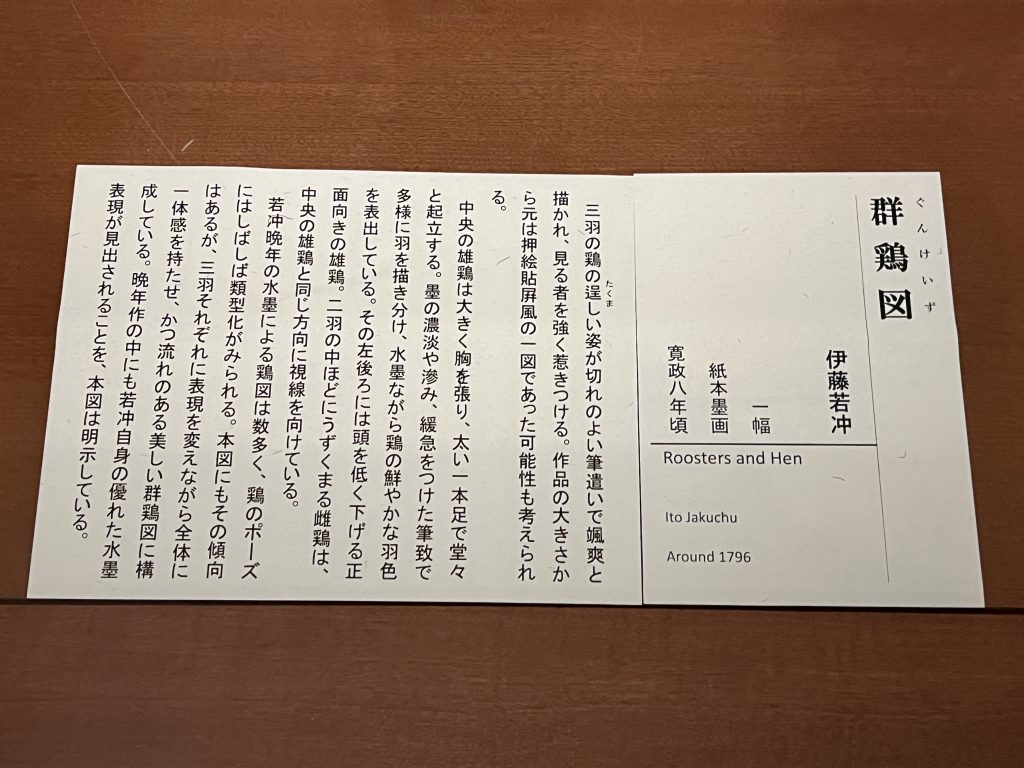 ぐんけいず
群鶏図
伊藤若冲
一幅
紙本墨画
寛政八年頃
Roosters and Hen
Ito Jakuchu
Around 1796
たくま
三羽の鶏の逞しい姿が切れのよい筆遣いで颯爽と
描かれ、見る者を強く惹きつける。作品の大きさか
ら元は押絵貼屛風の一図であった可能性も考えられ
る。
中央の雄鶏は大きく胸を張り、太い一本足で堂々
と起立する。墨の濃淡や滲み、緩急をつけた筆致で
多様に羽を描き分け、水墨ながら鶏の鮮やかな羽色
を表出している。その左後ろには頭を低く下げる正
面向きの雄鶏。二羽の中ほどにうずくまる雌鶏は、
中央の雄鶏と同じ方向に視線を向けている。
若冲晩年の水墨による鶏図は数多く、鶏のポーズ
にはしばしば類型化がみられる。本図にもその傾向
はあるが、三羽それぞれに表現を変えながら全体に
一体感を持たせ、かつ流れのある美しい群鶏図に構
成している。晩年作の中にも若冲自身の優れた水墨
表現が見出されることを、本図は明示している。